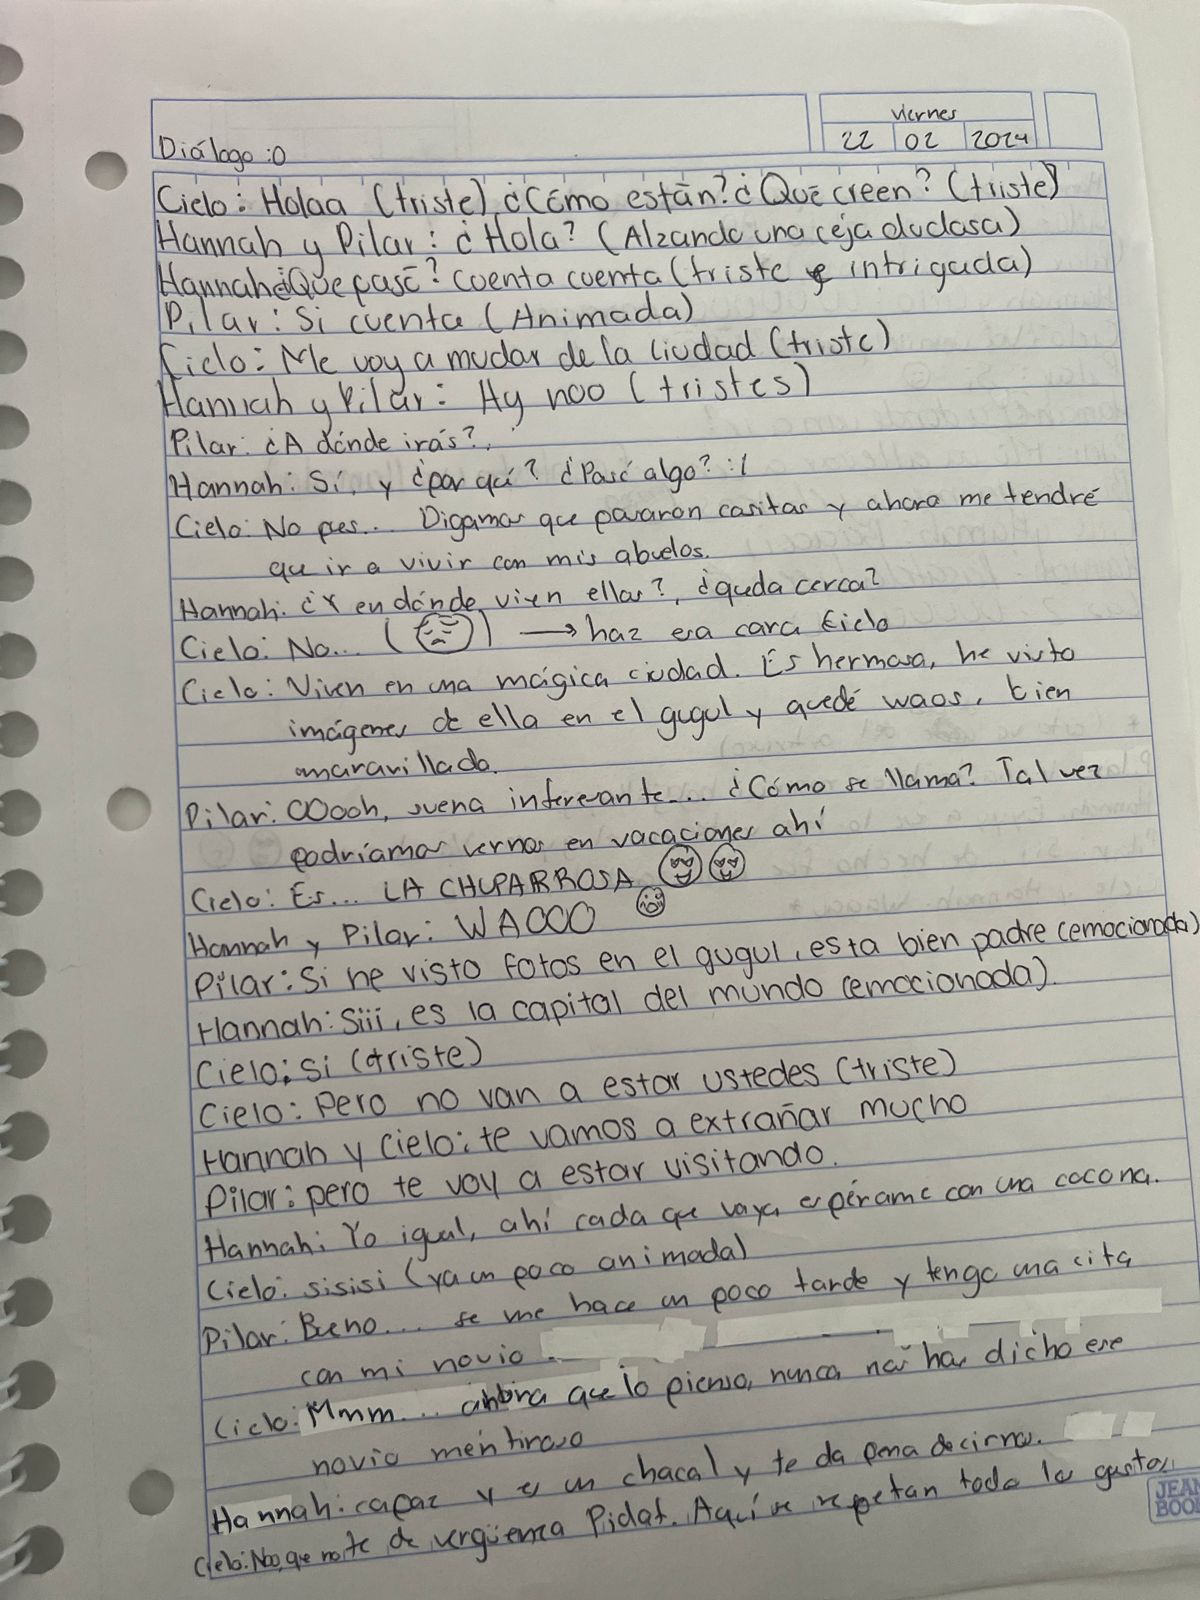 viernes
Diálogo :0 22 02 2024
Cielo: Holaa (triste) ¿Cómo están? ¿Qué creen? (triste)
Hannah y Pilar: ¿Hola? (Alzando una ceja dudosa)
Hannah: ¿Que pasó? cuenta cuenta (triste e intrigada)
Pilar: Si cuenta (Animada)
Cielo: Me voy a mudar de la ciudad (triste)
Hannah y Pilar: Ay noo (tristes)
Pilar: ¿A dónde irás?.
Hannah: Sí, y ¿por qué? ¿Pasó algo? :/
Cielo: No pues... Digamos que pasaron cositas y ahora me tendré
que ir a vivir con mis abuelos.
Hannah: ¿Y en dónde viven ellos?, ¿queda cerca?
Cielo: No... ( ) → haz esa cara Cielo
Cielo: Viven en una mágica ciudad. Es hermosa, he visto
imágenes de ella en el gugul y quedé waos, bien
maravillado.
Pilar: OOooh, suena interesante... ¿Cómo se llama? Tal vez
podríamos vernos en vacaciones ahí
Cielo: Es... LA CHUPARROSA
Hannah y Pilar: WAOOO
Pilar: Si he visto fotos en el gugul, esta bien padre (emocionada)
Hannah: Siii, es la capital del mundo (emocionada).
Cielo: Si (triste)
Cielo: Pero no van a estar ustedes (triste)
Hannah y Cielo: te vamos a extrañar mucho
Pilar: pero te voy a estar visitando.
Hannah: Yo igual, ahí cada que vaya espérame con una cocona.
Cielo: sisisi (ya un poco animada)
Pilar: Bueno... se me hace un poco tarde y tengo una cita
con mi novio
Cielo: Mmm... ahora que lo pienso, nunca nos has dicho ese
novio mentiroso
Hannah: capaz y es un chacal y te da pena decirnos.
Cielo: Noo, que no te de vergüenza Pidat. Aquí se respetan todo los gustos
JEAN BOOK